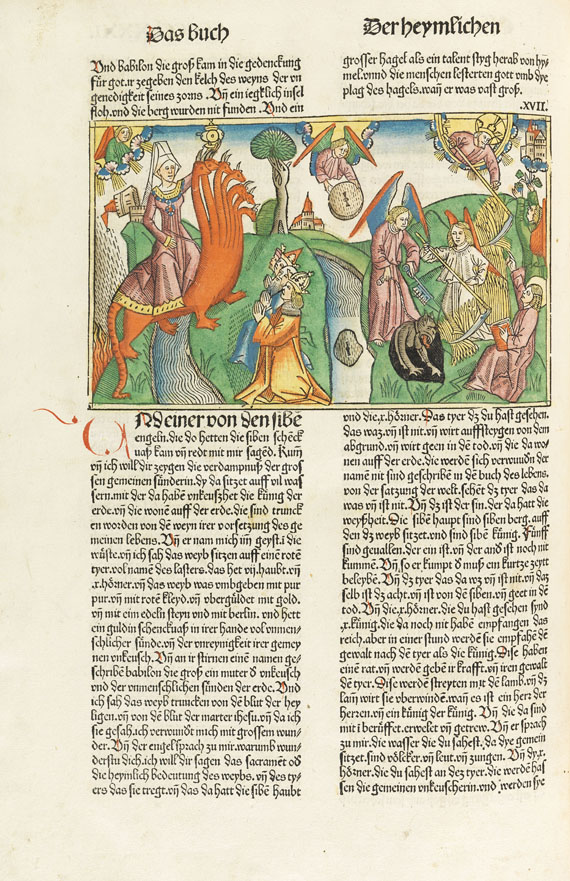 Das buch
Der heymlichen
Vnd babilon die groß kam in die gedenckung
für got.ir zegeben den kelch des weyns der vn
genedigkeit seines zorns .Vn̄ ein iegklich insel
floh.vnd die berg wurden nit funden .Vnd ein
grosser hagel als ein talent styg herab von hy-
mel.vnnd die menschen lesterten gott vmb dye
plag des hagels.wañ er was vast groß.
.XVII.
Nd einer von den sibē
engeln.die do hetten die siben schēck
uaß kam vn̄ redt mit mir sagēd. Kum̄
vn̄ ich will dir zeygen die verdampnuß der gros
sen gemeinen sünderin.dy da sitzet auff vil was
sern.mit der da habē vnkeüßhet die künig der
erde.vn̄ die wonē auff der erde.die sind trunck
en worden von dē weyn irer vorsetzung des ge
meinen lebens.Vn̄ er nam mich im̄ geyst.i die
wüste.vn̄ ich sah das weyb sitzen auff einē rotē
tyer.vol namē des lasters.das het vij.haubt.vn̄
.x.hörner.vn̄ das weyb was vmbgeben mit pur
pur.vn̄ mit rotē kleyd.vn̄ vbergüldet mit gold.
vn̄ mit eim edeln steyn vnd mit berlin. vnd hett
ein guldin schenckuaß in irer hande vol vnmen-
schlicher sünde.vn̄ der vnreynigkeit irer gemey
nen vnkeusch.Vn̄ an ir stirnen einē namen ge-
schribē babilon die groß ein muter d̕ vnkeusch
vnd der vnmenschlichen sünden der erde.Vnd
ich sah das weyb truncken von dē blut der hey
ligen.vn̄ von dē blut der marter ihesu.vn̄ da ich
sie gesah.ich verwundt mich mit grossem wun-
der.Vn̄ der engel sprach zu mir.warumb wun-
derstu dich.ich will dir sagen das sacramēt od̕
die heymlich bedeutung des weybs.vn̄ des ty-
ers das sie tregt.vn̄ das da hatt die sibē haubt
vnd die.x.hörner.Das tyer dz du hast gesehen.
das waz.vn̄ ist nit.vn̄ wirt auffsteygen von dem
abgrund.vn̄ wirt geen in den tod.vn̄ die da wo-
nen auff der erde.die werdē sich verwundn̄ der
namē nit sind geschribē in dē buch des lebens.
von der satzung der welt.sehēt dz tyer das da
was vn̄ ist nit.Vn̄ dz ist der sin.der da hatt die
weyßheit. Die sibē haupt sind siben berg.auff
den dz weyb sitzet.vnd sind sibē künig. Fünff
sind geuallen.der ein ist.vn̄ der and̕ ist noch nit
kummen.Vn̄.so er kumpt d̕ muß ein kurtze zeytt
beleybē.Vn̄ dz tyer das da wz vn̄ ist nit.vn̄ daz
selb ist dz acht.vn̄ ist von dē siben.vn̄ geet in dē
tod.Vn̄ die.x.hörner.die du hast gesehen synd
.x.künig.die da noch nit habē empfangen das
reich.aber in einer stund werdē sie empfahē dē
gewalt nach dē tyer als die künig.Dise haben
einē rat.vn̄ werdē gebē ir krafft.vn̄ iren gewalt
dē tyer.Dise werdē streyten mit dē lamb.vn̄ dz
lam̄ wirt sie vberwindē.wañ es ist ein herr der
herren.vn̄ ein künig der künig. Vn̄ die da sind
mit i berüffet.erwelet vn̄ getrew. Vn̄ er sprach
zu mir.die wasser die du sahest.da dye gemein
sitzet.sind völcker.vn̄ leut.vn̄ zungen. Vn̄ dy.x.
hörner.die du sahest an dez tyer.die werdē has
sen die gemeinen vnkeuscherin.vnd werden sye